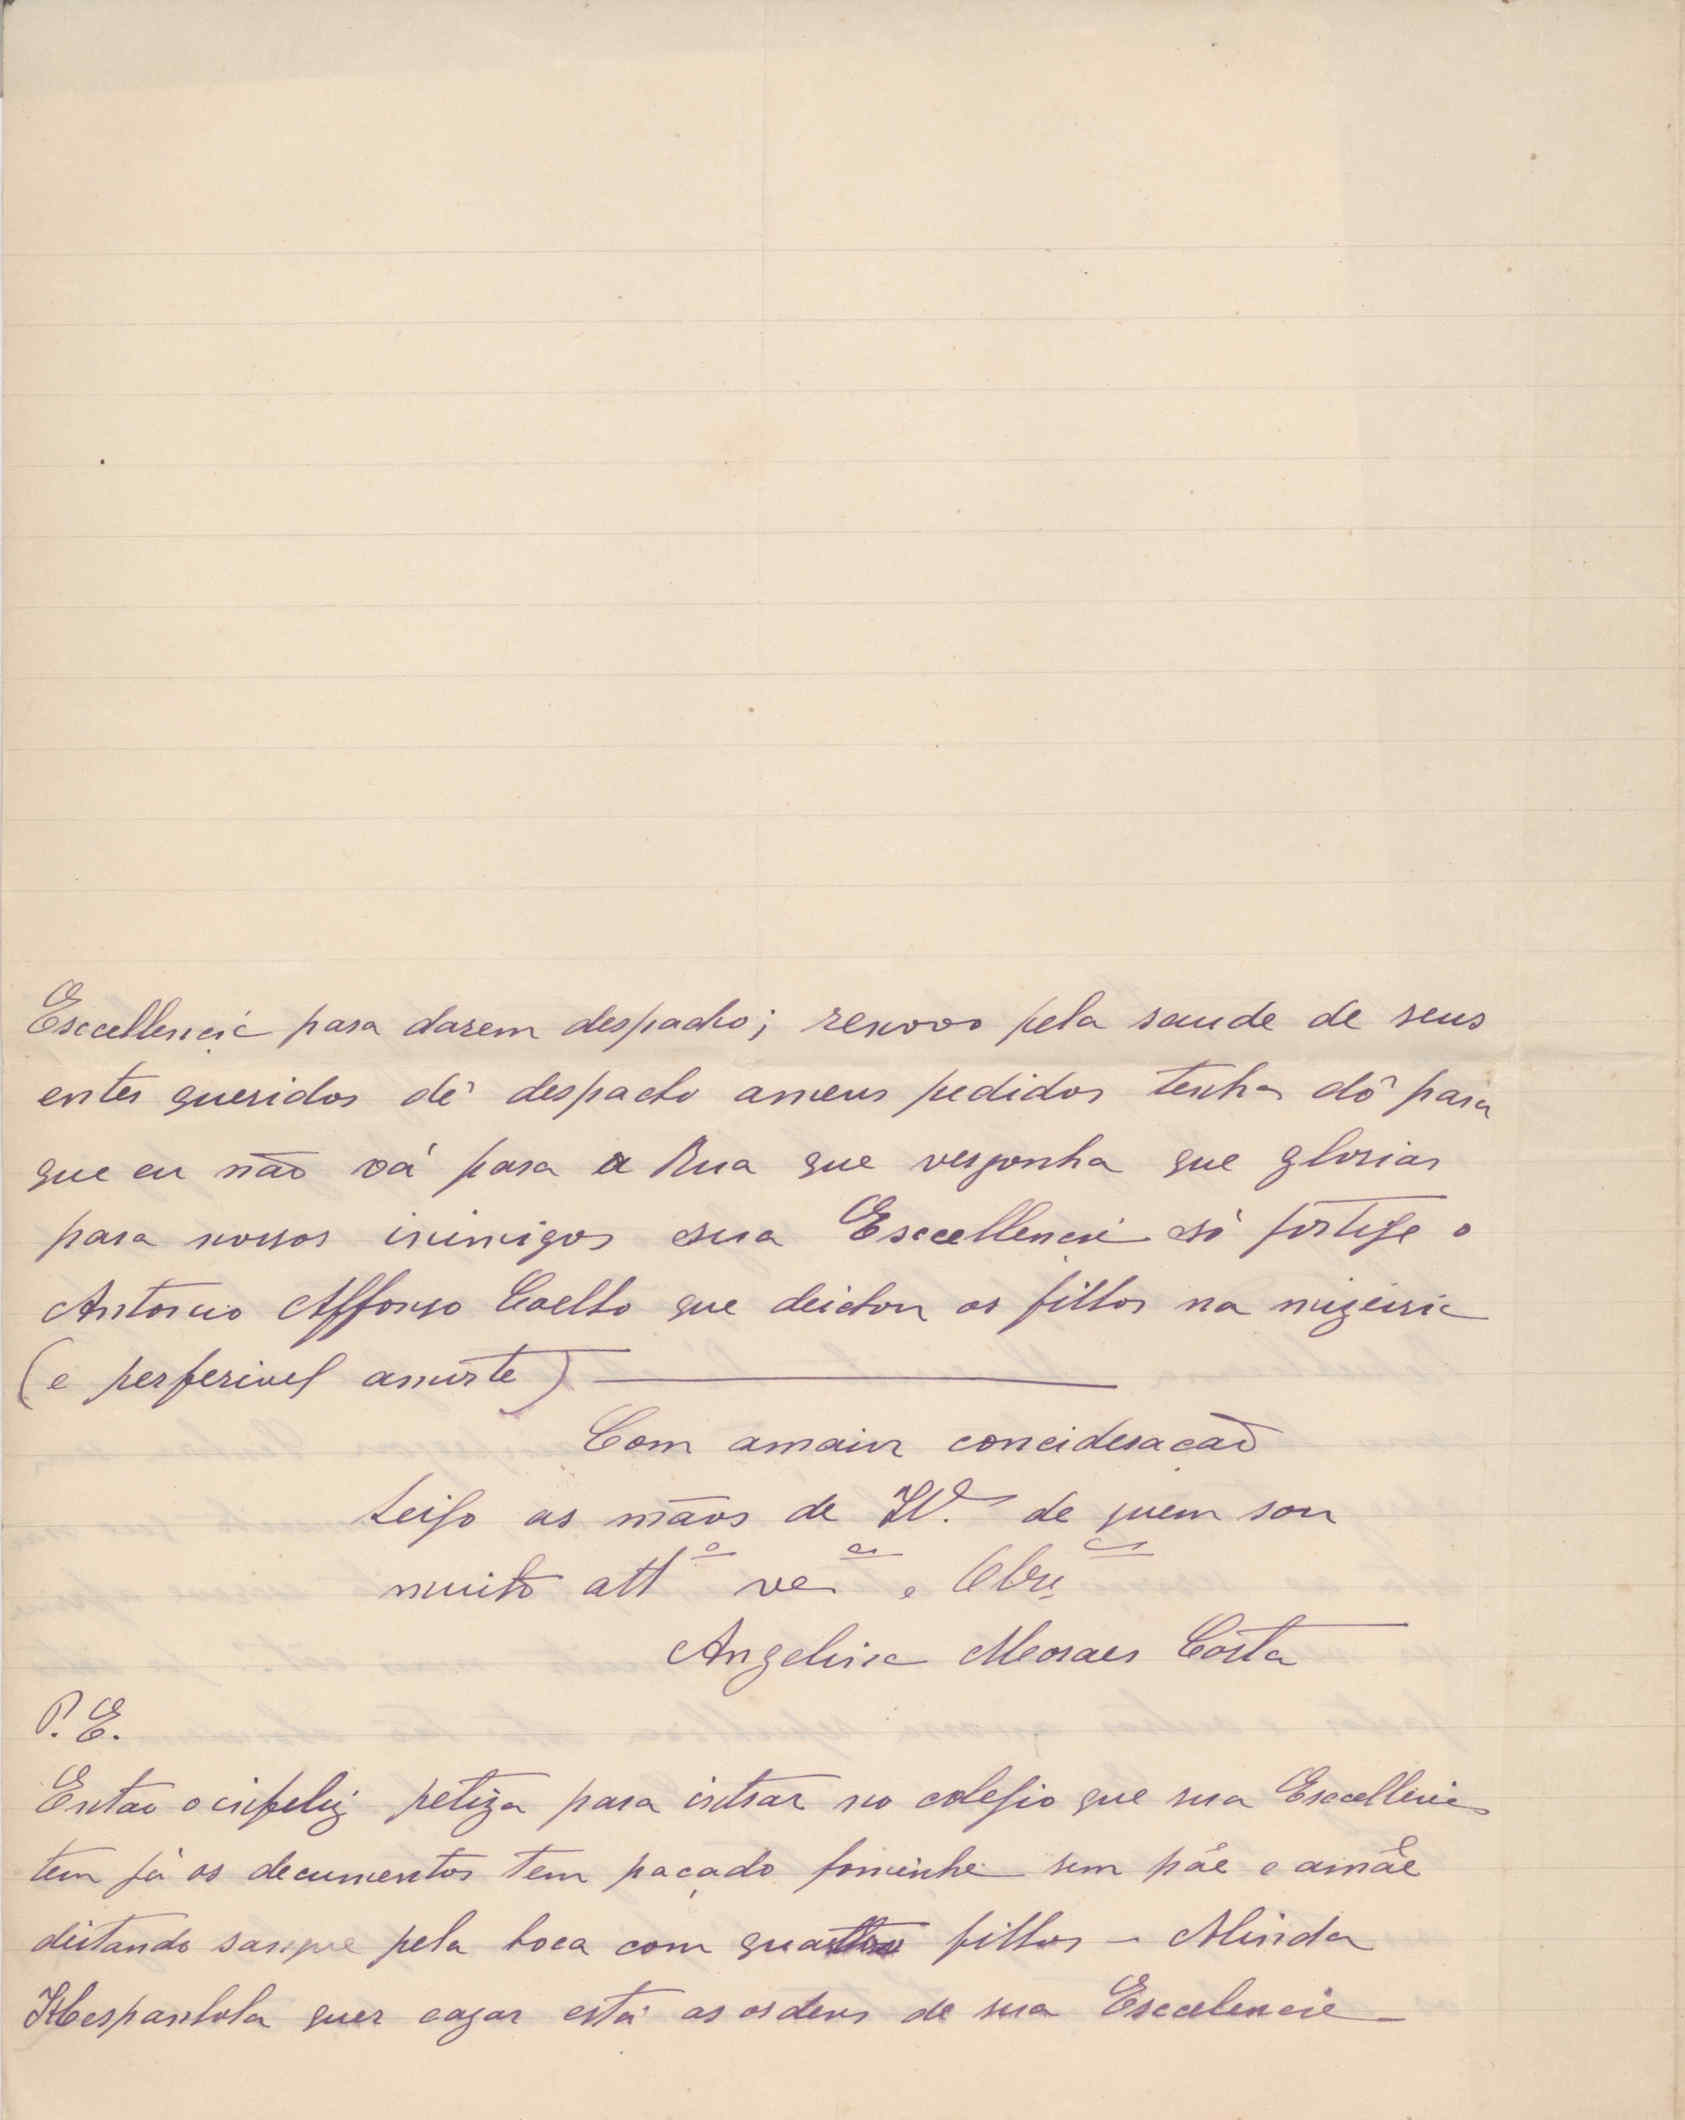 Esccellencia para darem despacho; renovo pela saude de seus
entes queridos dê despacho ameus pedidos tenha dô para
que eu não vá para a Rua que vergonha que glorias
para nossos inimigos sua Esccellencia só protege o
Antonio Affonso Coelho que deichou os filhos na mizeiria
(e perferivel amorte)
Com amaior concideração
beijo as mãos de V. de quem sou
muito att.º ve e Obr.
Angelina Moraes Costa
P. E.
Entao o infeliz petiza para intrar no colejio que sua Esccellencia
tem já os decumentos tem paçado fominha sem páe e amãe
deitando sangue pela boca com quatro filhos - Alinda
Hespanhola quer cazar está as ordens de sua Esccelencia -